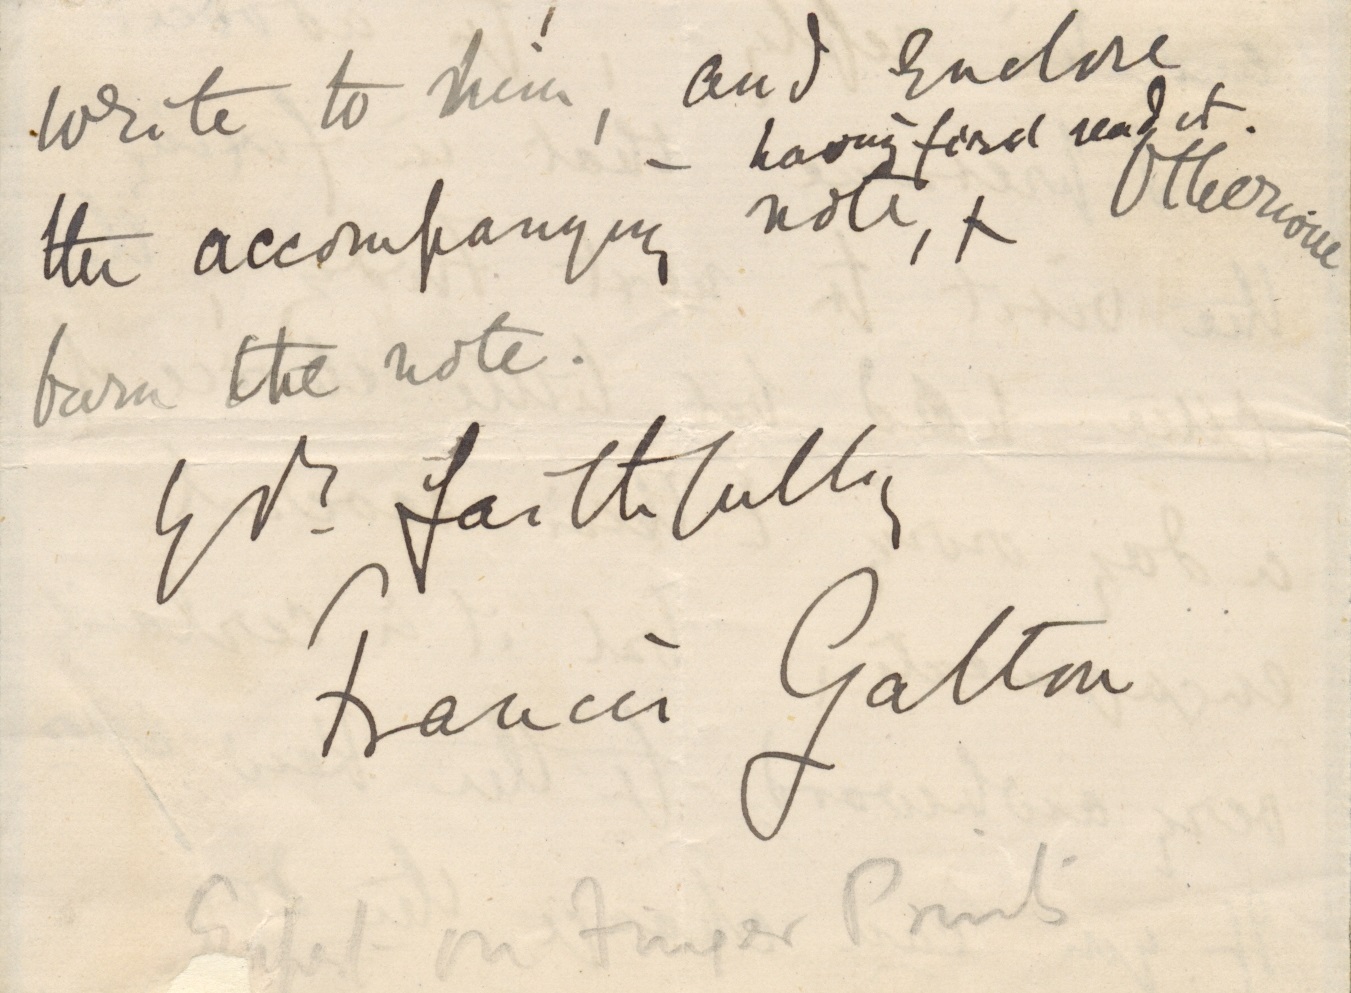 write to him, and enclose
– having first read it.
the accompanying note, + Otherwise
burn the note.
Yrs faithfully
Francis Galton
Expert on Finger Prints